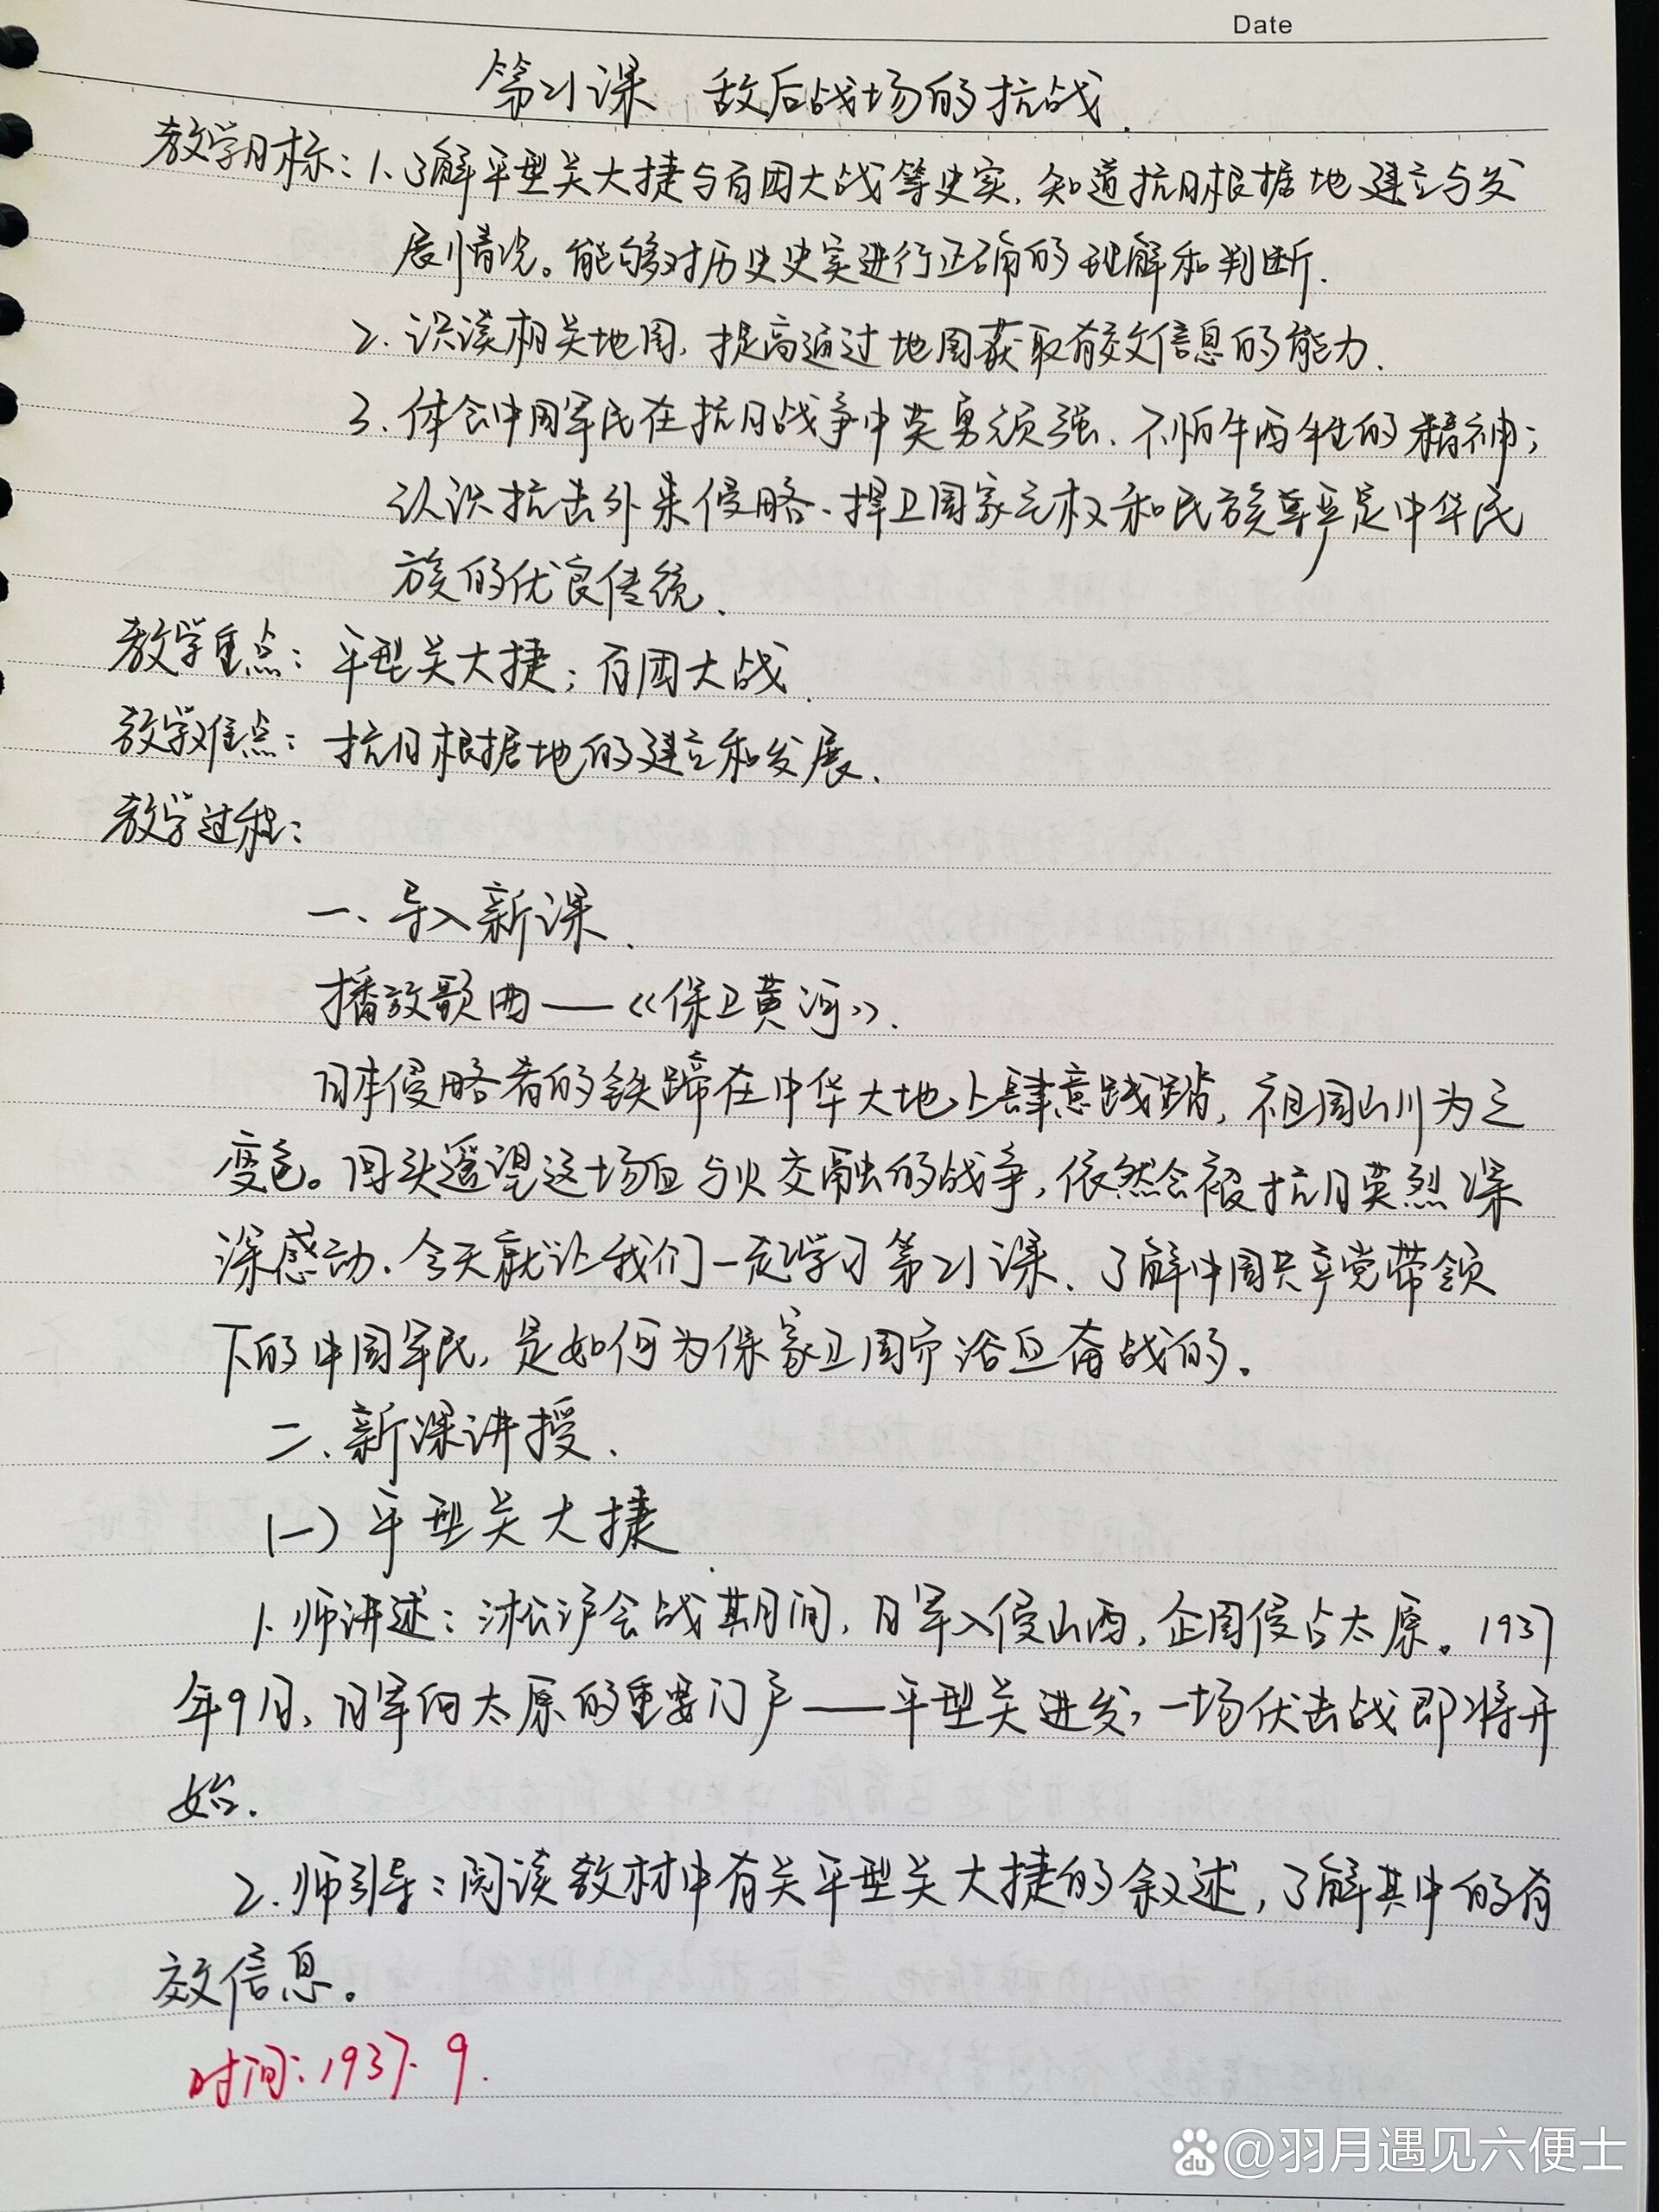 Date
第21课 敌后战场的抗战.
教学目标：1.了解平型关大捷与百团大战等史实，知道抗日根据地建立与发
展情况。能够对历史史实进行正确的理解和判断.
2. 识读相关地图，提高通过地图获取有效信息的能力.
3. 体会中国军民在抗日战争中英勇顽强、不怕牺牲的精神；
认识抗击外来侵略、捍卫国家主权和民族尊严是中华民
族的优良传统.
教学重点：平型关大捷；百团大战.
教学难点：抗日根据地的建立和发展.
教学过程：
一、导入新课.
播放歌曲——《保卫黄河》.
日本侵略者的铁蹄在中华大地上肆意践踏，祖国山川为之
变色。回头遥望这场血与火交融的战争，依然会被抗日英烈深
深感动.今天就让我们一起学习第21课、了解中国共产党带领
下的中国军民，是如何为保家卫国而浴血奋战的。
二.新课讲授.
(一)平型关大捷.
1.师讲述：淞沪会战期间，日军入侵山西，企图侵占太原。1937
年9月，日军向太原的重要门户——平型关进发，一场伏击战即将开
始.
2.师引导：阅读教材中有关平型关大捷的叙述，了解其中的有
效信息。
时间：1937.9.
du @羽月遇见六便士